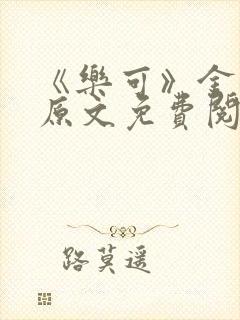 《樂可》全
原文免費閱
路莫遥